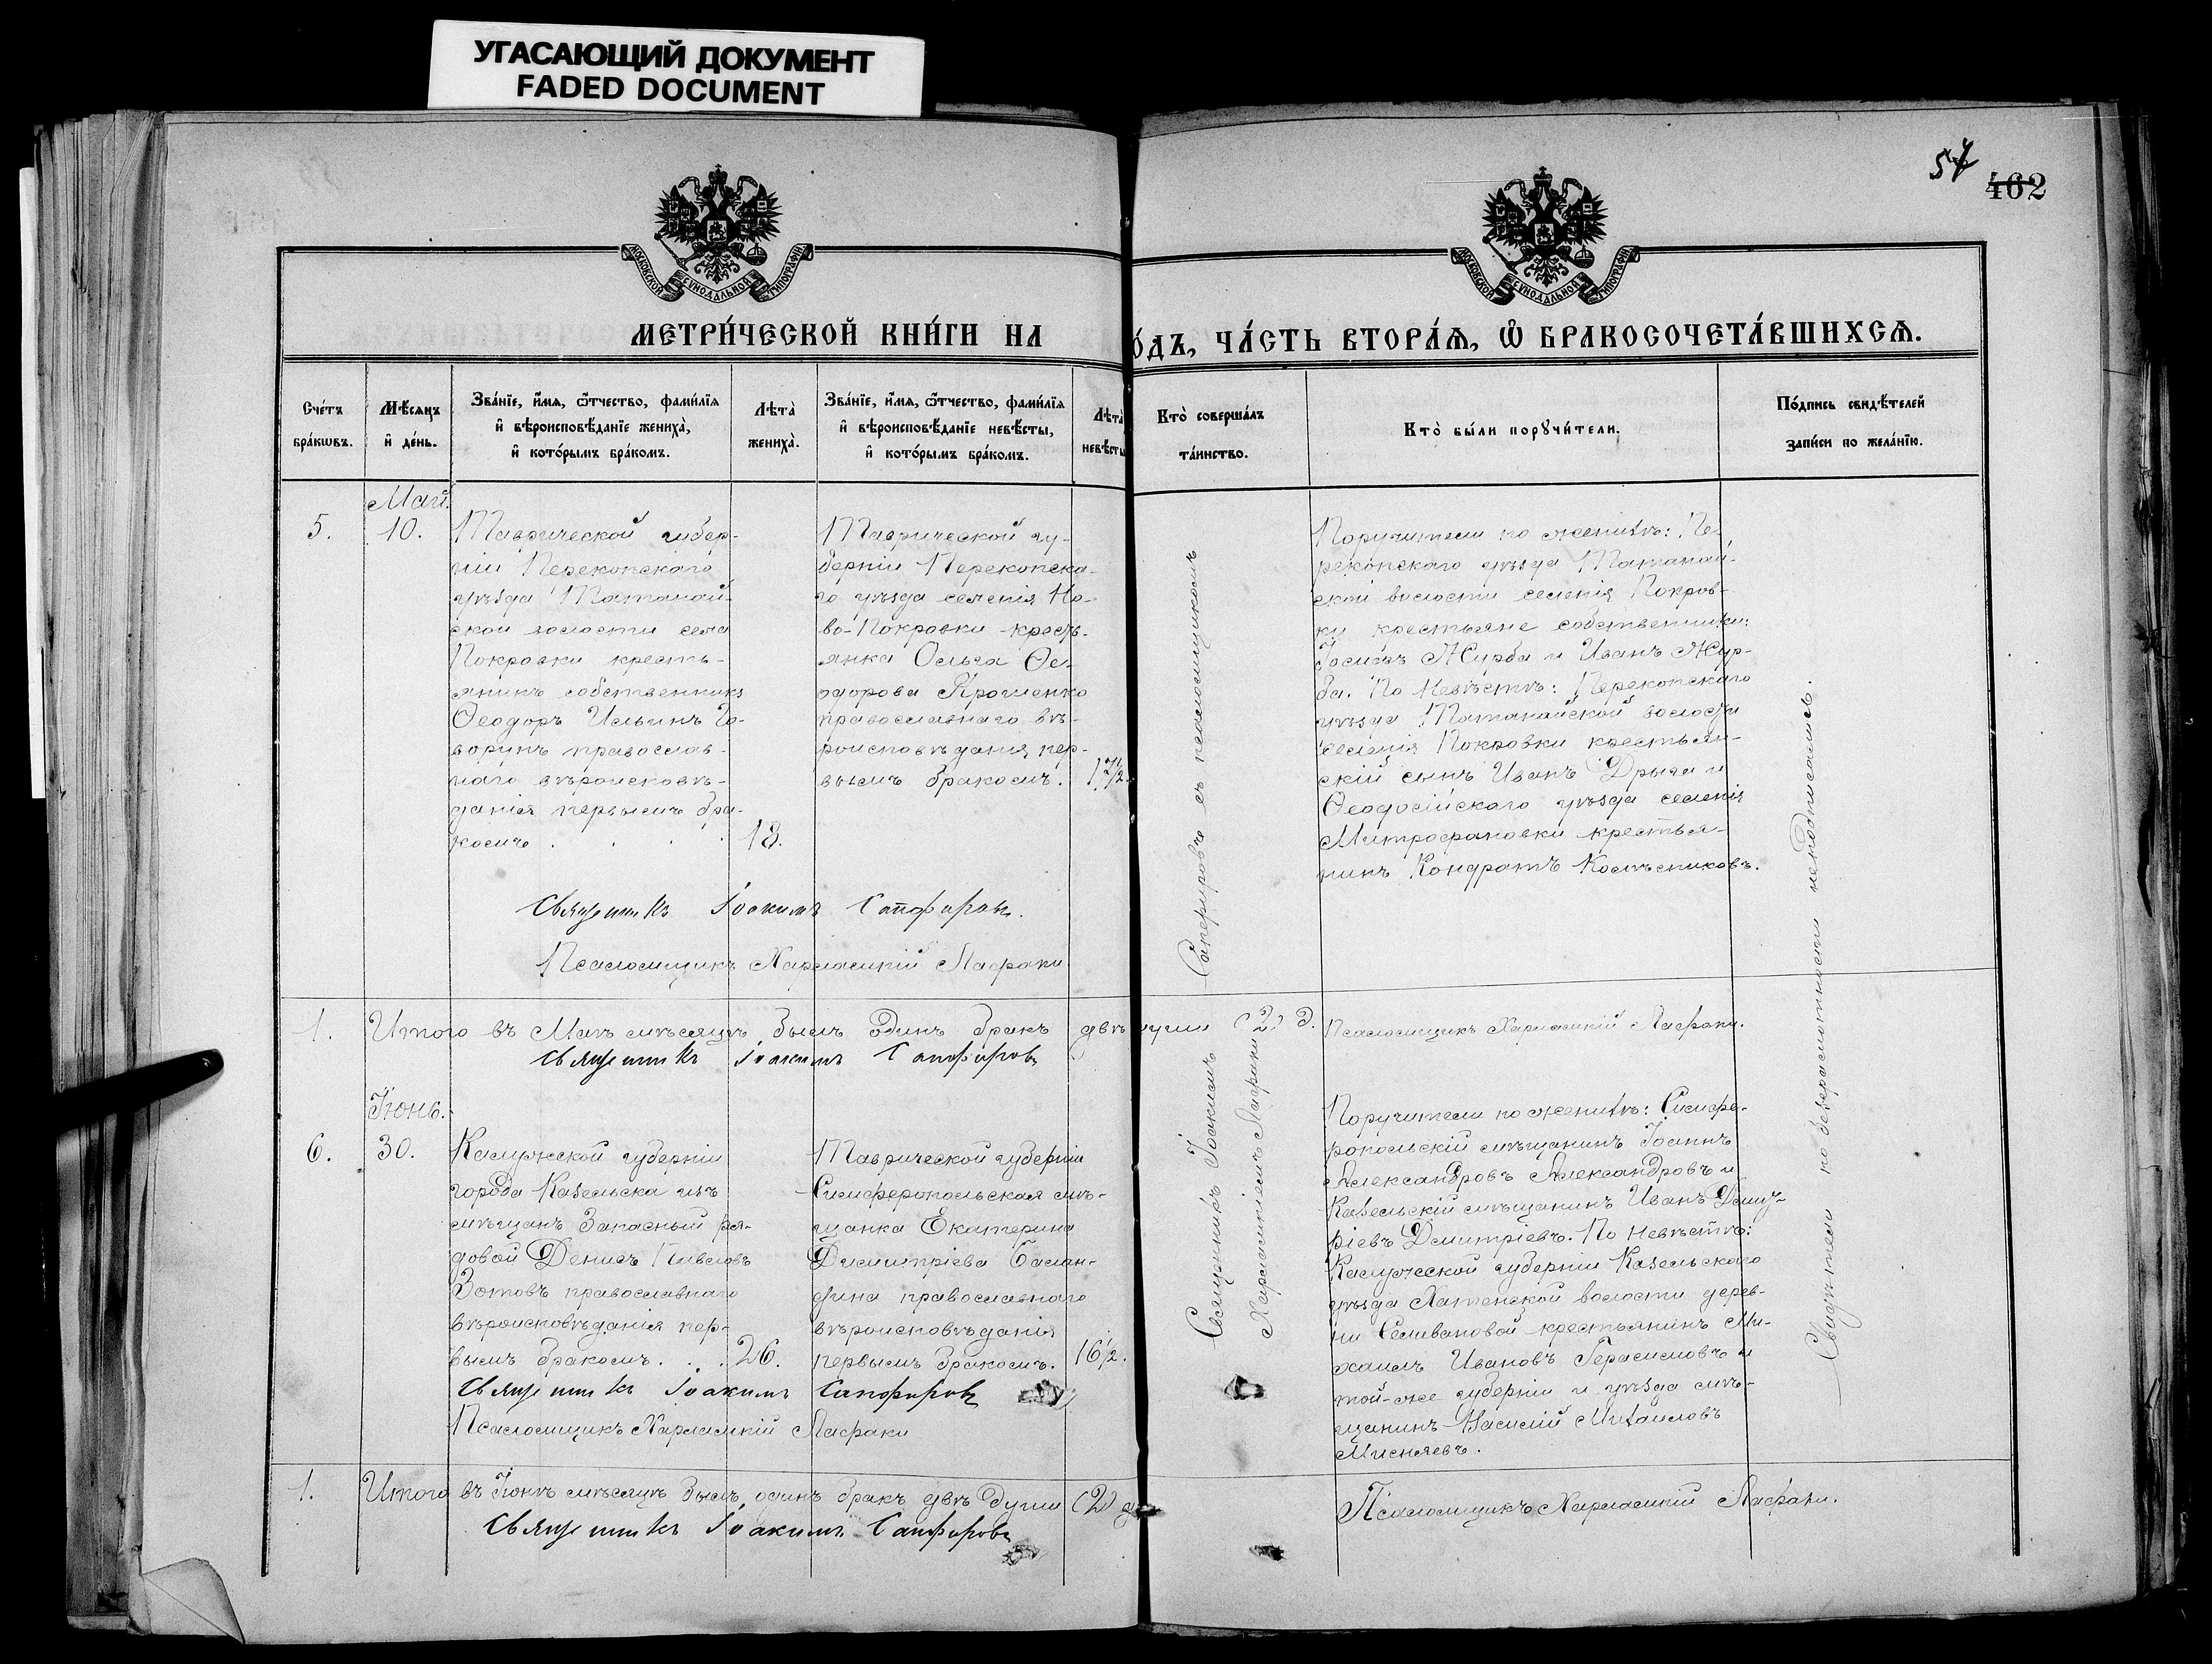 УГАСАЮЩИЙ ДОКУМЕНТ
FADED DOCUMENT
54
462
МОСКОВСКОЙ СѴНОДАЛЬНОЙ ТИПОГРАФІИ
МОСКОВСКОЙ СѴНОДАЛЬНОЙ ТИПОГРАФІИ
МЕТРИ́ЧЕСКОЙ КНИ́ГИ НА
О́ДЪ, ЧА́СТЬ ВТОРА́Ѧ, Ѽ БРАКОСОЧЕТА́ВШИХСѦ.
Сче́тъ
бра́кѡвъ.
Мѣ́сяцъ
и҆ де́нь.
Зва́нїе, и҆́мя, ѻ҆́тчество, фами́лїя
и҆ вѣроисповѣ́данїе жениха̀,
и҆ кото́рымъ бра́комъ.
Лѣта̀
жениха̀.
Зва́нїе, и҆́мя, ѻ҆́тчество, фами́лїя
и҆ вѣроисповѣ́данїе невѣ́сты,
и҆ кото́рымъ бра́комъ.
Лѣта̀
невѣ́сты
Кто̀ соверша́лъ
та́инство.
Кто̀ бы́ли порꙋчи́тели.
По́дпись свидѣ́телей
за́писи по жела́нїю.
Май.
5.
10.
Таврической губер-
ніи Перекопскаго
уѣзда Патанай-
ской волости села
Покровки кресть-
янинъ собственникъ
Ѳеодоръ Ильинъ Го-
ворунъ православ-
наго вѣроисповѣ-
данія первымъ бра-
комъ . . . .
18.
Таврической гу-
берніи Перекопска-
го уѣзда селенія Но-
во-Покровки кресть-
янка Ольга Ѳе-
одорова
православнаго вѣ-
роисповѣданія пер-
вымъ бракомъ.
17 1/2.
Поручители по женихѣ: Пе-
рекопскаго уѣзда Патанай-
ской волости селенія Покров-
ки крестьяне собственники:
Іосифъ Журба и Иванъ Жур-
ба. По невѣстѣ: Перекопскаго
уѣзда Патанайской волости
селенія Покровки крестьян-
скій сынъ Иванъ Дрыга и
Ѳеодосійскаго уѣзда селенія
Митрофановки крестья-
нинъ Кондратъ Колѣсниковъ.
Священникъ Іоакимъ Сапфировъ.
Псаломщикъ Харлампій Лафаки
1.
Итого въ Маѣ мѣсяцѣ былъ одинъ бракъ двѣ души (2) д.
Псаломщикъ Харлампій Лафаки.
Священникъ Іоакимъ Сапфировъ
Іюнь.
6.
30.
Калужской губерніи
города Казельска изъ
мѣщанъ Запасный ря-
довой Денисъ Павловъ
Зотовъ православнаго
вѣроисповѣданія пер-
вымъ бракомъ. . .
26.
Таврической губерніи
Симферопольская мѣ-
щанка Екатерина
Димитріева Балан-
дина православнаго
вѣроисповѣданія
первымъ бракомъ.
16 1/2.
Поручители по женихѣ: Симфе-
ропольскій мѣщанинъ Іоаннъ
Александровъ Александровъ и
Казельскій мѣщанинъ Иванъ Димит-
ріевъ Димитріевъ. По невѣстѣ:
Калужской губерніи Казельскаго
уѣзда волости дерев-
ни Селивановой крестьянинъ Ми-
хаилъ Ивановъ Герасимовъ и
той-же губерніи и уѣзда мѣ-
щанинъ Василій Михаиловъ
Священникъ Іоакимъ Сапфировъ
Псаломщикъ Харлампій Лафаки
Священникъ Іоакимъ Сапфировъ съ псаломщикомъ
Харлампіемъ Лафаки
Свидѣтели по безграмотности неподписались.
1.
Итого въ Іюнѣ мѣсяцѣ былъ одинъ бракъ двѣ души (2) д
Псаломщикъ Харлампій Лафаки.
Священникъ Іоакимъ Сапфировъ